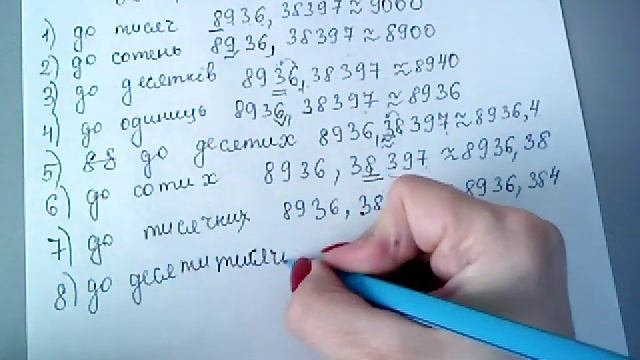 1) до тисяч 8936,38397≈9000
2) до сотень 8936,38397≈8900
3) до десятків 8936,38397≈8940
4) до одиниць 8936,38397≈8936
5) до десятих 8936,38397≈8936,4
6) до сотих 8936,38397≈8936,38
7) до тисячних 8936,38 8936,384
8) до десятитисяч